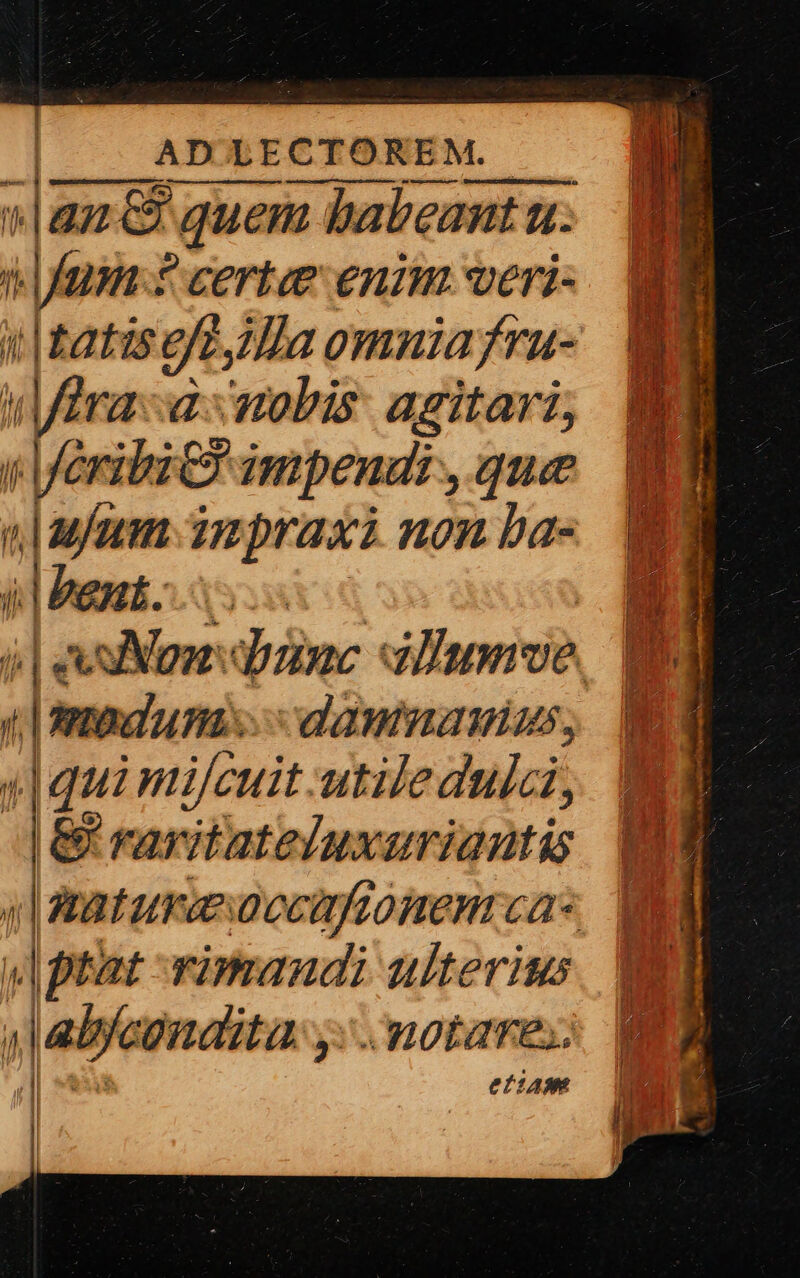 AD LECTOREM.
an & quem habeant u-
ſum? certæ enim veri-
tatis eſt, illa omnia fru-
ſtra à nobis agitari,
ſcribi & impendi, quæ
uſum in praxi non ha-
bent.
Non hunc illumve
modum damnamus,
qui miſcuit utile dulci,
& raritate luxuriantis
naturæ occaſionem ca-
ptat rimandi ulterius
abſcondita, notare
etiam